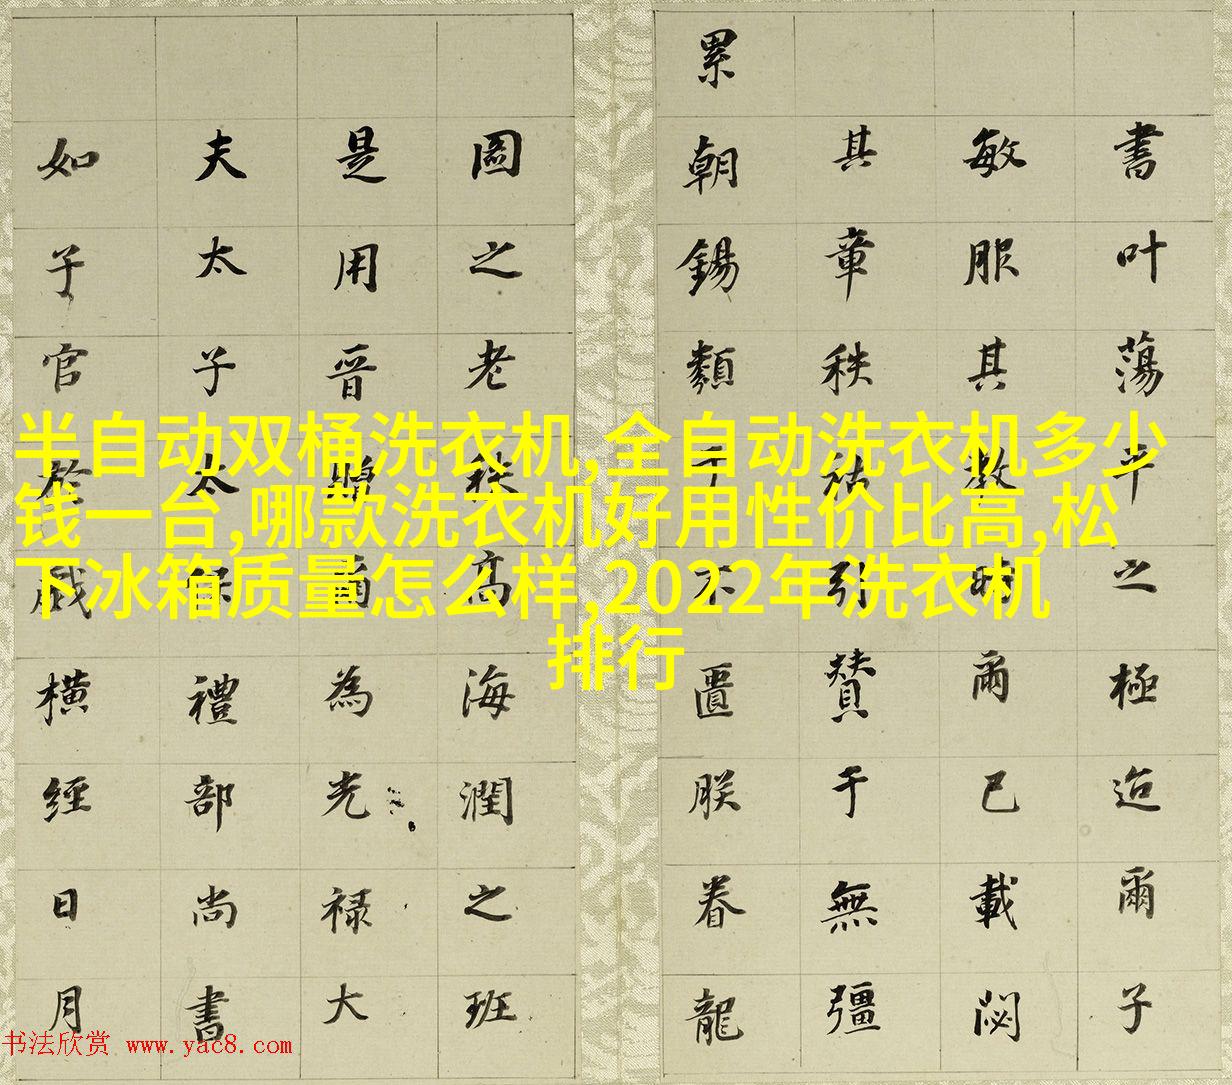 書叶蕩平之極迨爾子
敏服其教爾已載閟
其章秩祜引贊于無彊
累朝錫類于不匱朕眷龍
圖之老秩高海潤之班
是用晉為光禄大
夫太子太保禮部尚書
如子官於戲橫經日月
半自动双桶洗衣机,全自动洗衣机多少
钱一台,哪款洗衣机好用性价比高,松
下冰箱质量怎么样,2022年洗衣机
排行
书法欣赏 www.yac8.com